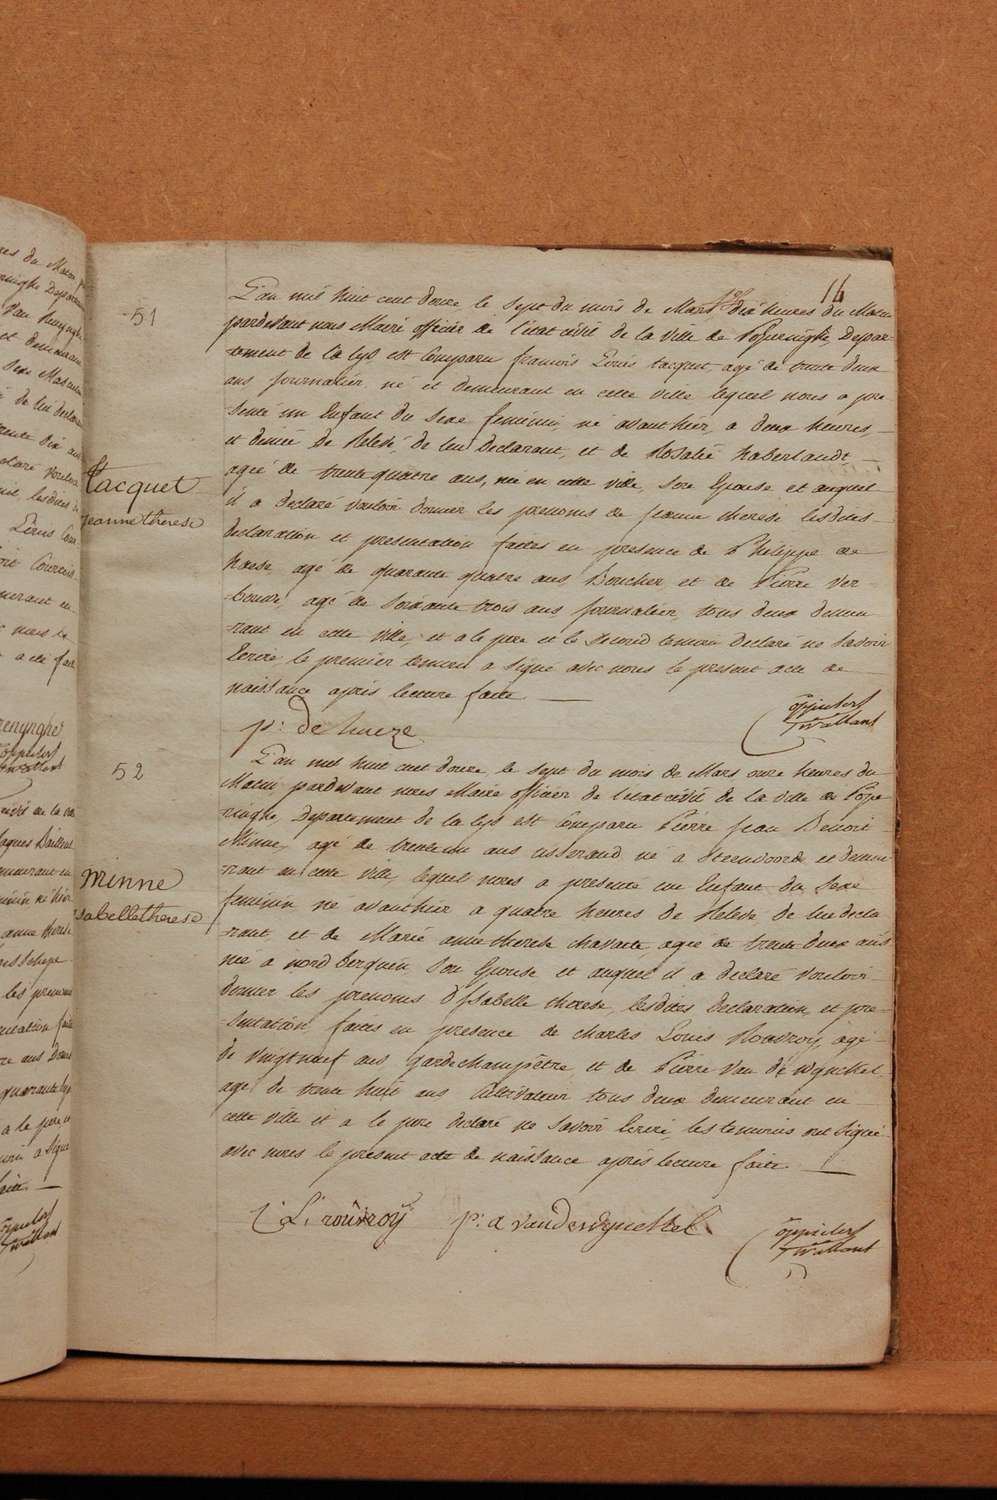 14
51
L'an mil huit cent douze le sept du mois de Mars dix heures du Matin
pardevant nous Maire officier de l'état civil de la ville de Poperinghe Depar-
tement de la lys est Comparu francois Louis tacquet, agé de trente deux
ans journalier né et demeurant en cette ville lequel nous a pre
senté un Enfant du Sexe feminin, né avanthier, a deux heures,
et demie de Relevé, de lui Declarant, et de Rosalie haberlandt
ageé de trente quatre ans, née en cette ville, Son Epouse et auquel
il a declaré vouloir donner les prenoms de jeanne therese lesdites
declaration et presentation faites en presence de Philippe de
haese, agé de quarante quatre ans Boucher, et de Pierre Ver-
agé de Soixante trois ans, journalier, tous deux demeu
rant en cette ville, et a le pere et le Second temoin Declaré ne Savoir
Ecrire le premier temoin a Signé avec nous le present acte de
naissance après lecture faite
tacquet
jeanne therese
p: de
52
L'an mil huit cent douze, le sept du mois de Mars onze heures du
Matin, pardevant nous Maire officier de l'état civil de la ville de Pope
ringhe, Departement de la lys est Comparu Pierre Jean Benoit
Minne, agé de trente un ans tisserand, né a Steenvoorde et demeu
rant en cette ville, lequel nous a presenté un Enfant du Sexe
feminin né avanthier a quatre heures de Relevé de lui decla
rant, et de Marie anne therese chavaete, ageé de trente deux ans
née a nord berquin, Son Epouse et auquel il a declaré vouloir
donner les prenoms d'Isabelle therese, lesdites Declaration et pre-
sentation faites en presence de Charles Louis Rouvroy, agé
de vingt neuf ans garde champêtre, et de Pierre Van de wynckel,
agé de trente huit ans Cultivateur tous deux demeurant en
cette ville et a le pere declaré ne Savoir Ecrire, les temoins ont Signé
avec nous le present acte de naissance après lecture faite.
Minne
isabelle therese
L: rouvroy p: a vandewynckel